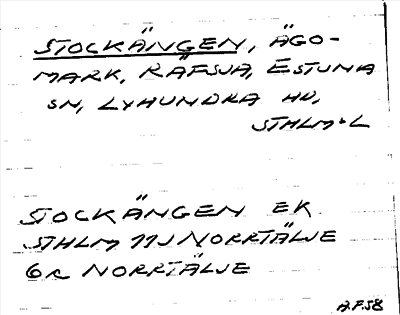 STOCKÄNGEN, ÄGO-
MARK, RÄFSJA, ESTUNA
SN, LYHUNDRA HD,
STHLMS L
STOCKÄNGEN EK
STHLM 11J NORRTÄLJE
6c NORRTÄLJE
A.F.58